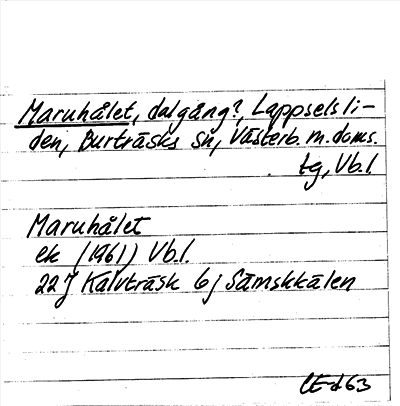 Maruhålet, dalgång?, Lappselsli-
den, Burträsks sn, Västerb. m. doms.
tg, Vb.l.
Maruhålet
ek (1961) Vb.l.
22J Kalvträsk 6j Sämskkälen